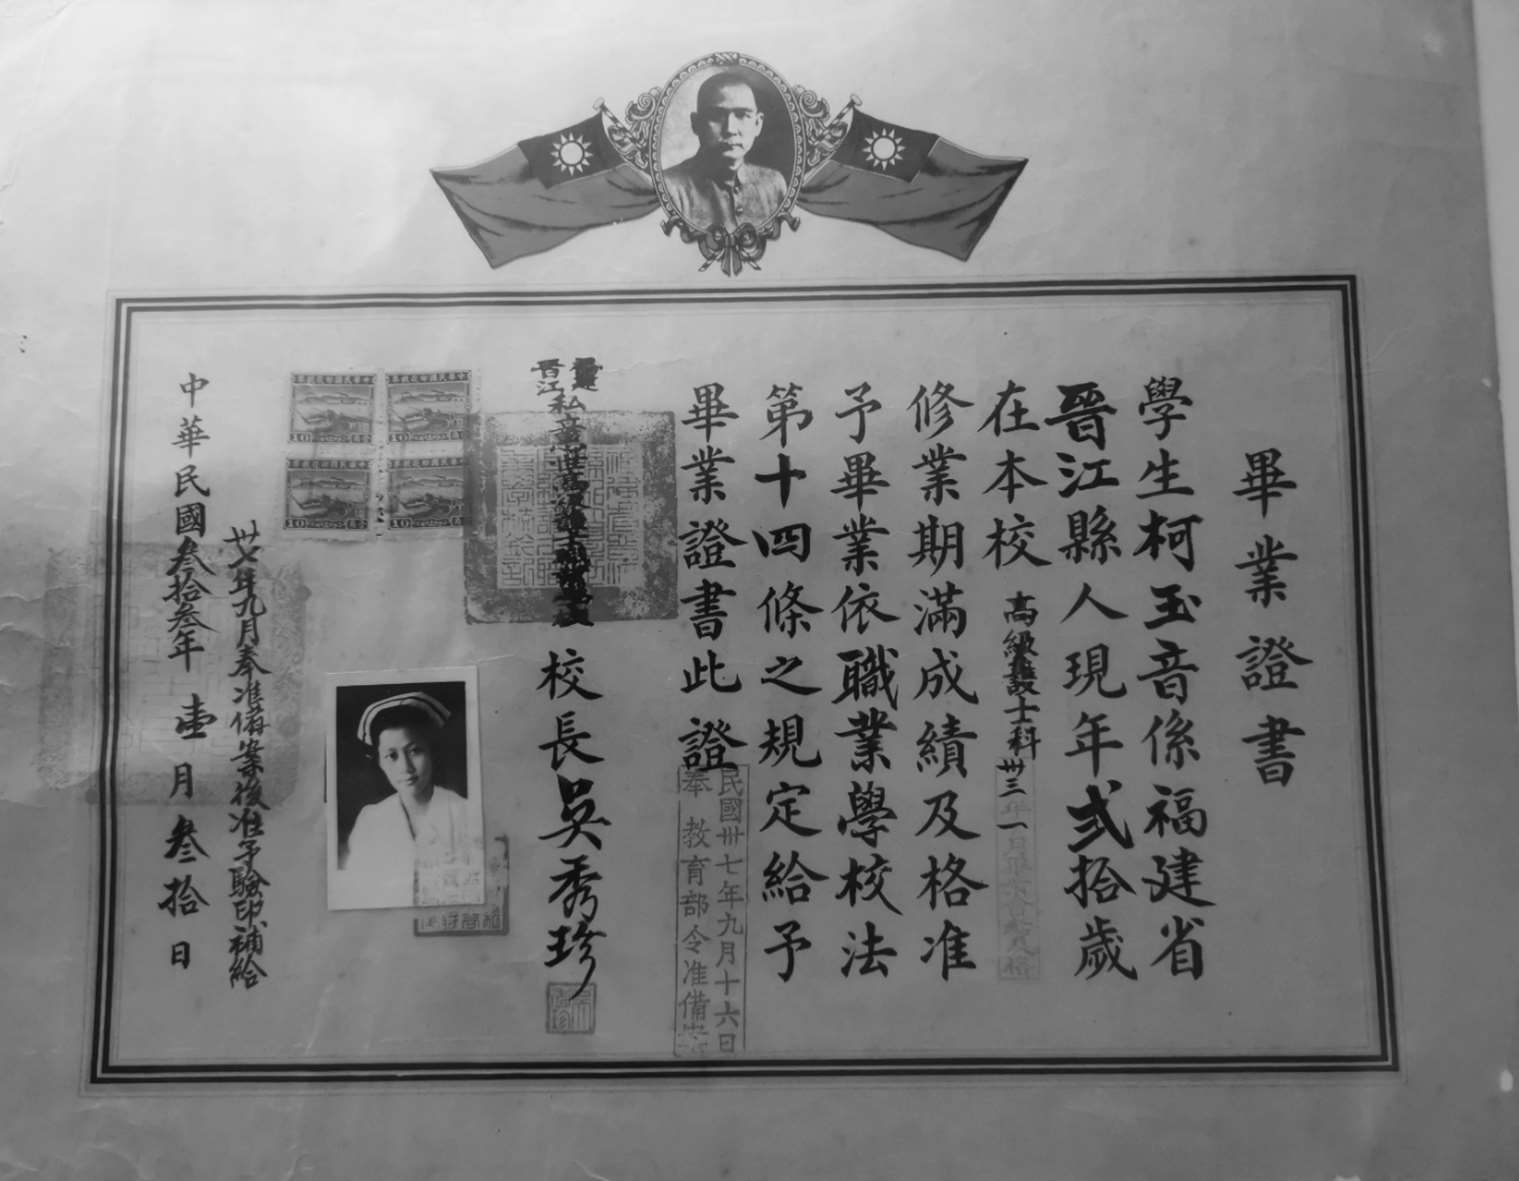 畢業證書
學生柯玉音係福建省
晉江縣人現年貳拾歲
在本校高級護士科卅三年一月
修業期滿成績及格准
予畢業依職業學校法
第十四條之規定給予
畢業證書此證
民國卅七年九月十六日
奉教育部令准備案
福建
晉江私立惠世高級護士職業學校
校長吳秀珍
卅七年九月奉准備案後准予驗印補給
中華民國叁拾叁年壹月叁拾日
10
10
10
10